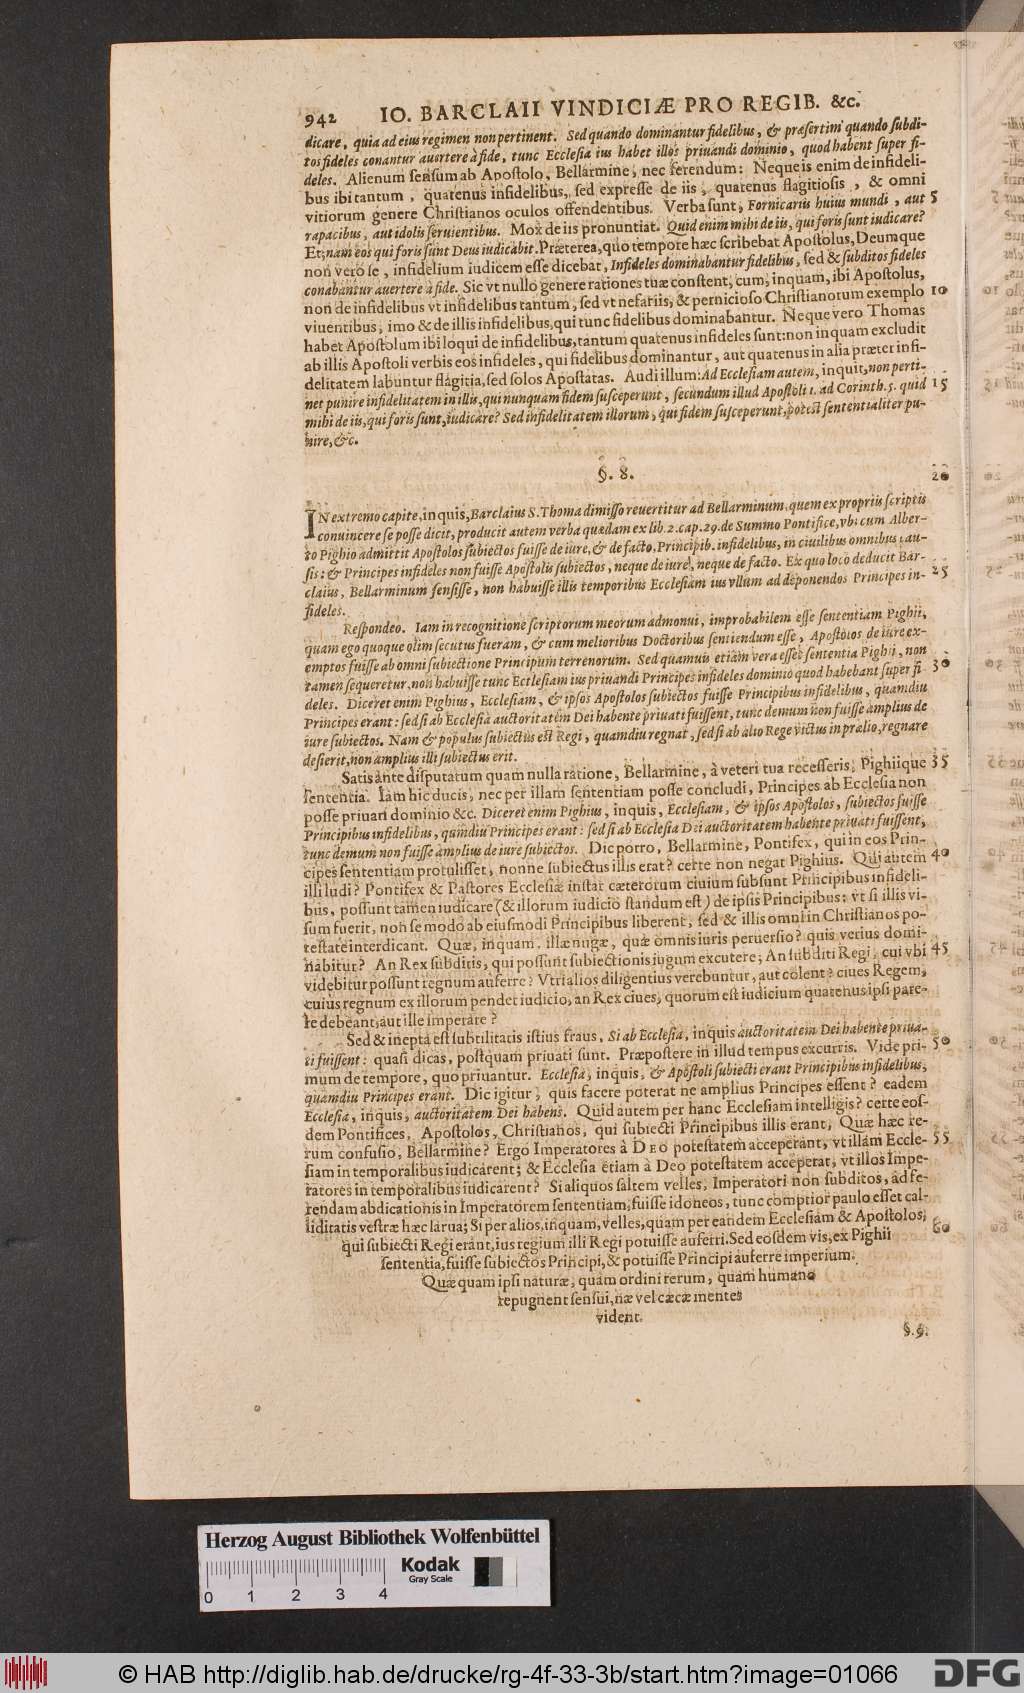 942 IO. BARCLAII VINDICIÆ PRO REGIB. &c.
dicare, quia ad eius regimen non pertinent. Sed quando dominantur fidelibus, & præsertim quando subdi-
tos fideles conantur auertere à fide, tunc Ecclesia ius habet illos priuandi dominio, quod habent super fi-
deles. Alienum sensum ab Apostolo, Bellarmine, nec ferendum: Neque is enim de infideli-
bus ibi tantum, quatenus infidelibus, sed expresse de iis, quatenus flagitiosis, & omni
vitiorum genere Christianos oculos offendentibus. Verba sunt, Fornicariis huius mundi, aut 5
rapacibus, aut idolis seruientibus. Mox de iis pronuntiat. Quid enim mihi de iis, qui foris sunt iudicare?
Et; nam eos qui foris sunt Deus iudicabit. Præterea, quo tempore hæc scribebat Apostolus, Deumque
non vero se, infidelium iudicem esse dicebat, Infideles dominabantur fidelibus, sed & subditos fideles
conabantur auertere à fide. Sic vt nullo genere rationes tuæ constent, cum, inquam, ibi Apostolus,
non de infidelibus vt infidelibus tantum, sed vt nefariis, & pernicioso Christianorum exemplo 10
viuentibus, imo & de illis infidelibus, qui tunc fidelibus dominabantur. Neque vero Thomas
habet Apostolum ibi loqui de infidelibus, tantum quatenus infideles sunt: non inquam excludit
ab illis Apostoli verbis eos infideles, qui fidelibus dominantur, aut quatenus in alia præter infi-
delitatem labuntur flagitia, sed solos Apostatas. Audi illum: Ad Ecclesiam autem, inquit, non perti-
net punire infidelitatem in illis, qui nunquam fidem susceperunt, secundum illud Apostoli 1. ad Corinth. 5. quid 15
mihi de iis, qui foris sunt, iudicare? Sed infidelitatem illorum, qui fidem susceperunt, potest sententialiter pu-
nire, &c.
§. 8.
20
IN extremo capite, inquis, Barclaius S. Thoma dimisso reuertitur ad Bellarminum, quem ex propriis scriptis
conuincere se posse dicit, producit autem verba quædam ex lib. 2. cap. 29. de Summo Pontifice, vbi cum Alber-
to Pighio admittit Apostolos subiectos fuisse de iure, & de facto, Principib. infidelibus, in ciuilibus omnibus cau-
sis: & Principes infideles non fuisse Apostolis subiectos, neque de iure, neque de facto. Ex quo loco deducit Bar-
claius, Bellarminum sensisse, non habuisse illis temporibus Ecclesiam ius vllum ad deponendos Principes in- 25
fideles.
Respondeo. Iam in recognitione scriptorum meorum admonui, improbabilem esse sententiam Pighii,
quam ego quoque olim secutus fueram, & cum melioribus Doctoribus sentiendum esse, Apostolos de iure ex-
emptos fuisse ab omni subiectione Principum terrenorum. Sed quamuis etiam vera esset sententia Pighii, non
tamen sequeretur, non habuisse tunc Ecclesiam ius priuandi Principes infideles dominio quod habebant super fi 30
deles. Diceret enim Pighius, Ecclesiam, & ipsos Apostolos subiectos fuisse Principibus infidelibus, quamdiu
Principes erant: sed si ab Ecclesia auctoritatem Dei habente priuati fuissent, tunc demum non fuisse amplius de
iure subiectos. Nam & populus subiectus est Regi, quamdiu regnat, sed si ab alio Rege victus in prælio, regnare
desierit, non amplius illi subiectus erit.
Satis ante disputatum quam nulla ratione, Bellarmine, à veteri tua recesseris, Pighiique 35
sententia. Iam hic ducis, nec per illam sententiam posse concludi, Principes ab Ecclesia non
posse priuari dominio &c. Diceret enim Pighius, inquis, Ecclesiam, & ipsos Apostolos, subiectos fuisse
Principibus infidelibus, qumdiu Principes erant: sed si ab Ecclesia Dei auctoritatem habente priuati fuissent,
tunc demum non fuisse amplius de iure subiectos. Dic porro, Bellarmine, Pontifex, qui in eos Prin-
cipes sententiam protulisset, nonne subiectus illis erat? certe non negat Pighius. Qui autem 40
illi ludi? Pontifex & Pastores Ecclesiæ instar cæterorum ciuium subsunt Principibus infideli-
bus, possunt tamen iudicare (& illorum iudicio standum est) de ipsis Principibus: vt si illis vi-
sum fuerit, non se modo ab eiusmodi Principibus liberent, sed & illis omni in Christianos po-
testate interdicant. Quæ, inquam, illæ nugæ, quæ omnis iuris peruersio? quis verius domi-
nabitur? An Rex subditis, qui possunt subiectionis iugum excutere; An subditi Regi, cui vbi 45
videbitur possunt regnum auferre? Vtri alios diligentius verebuntur, aut colent? ciues Regem,
cuius regnum ex illorum pendet iudicio, an Rex ciues, quorum est iudicium quatenus ipsi pare-
re debeant, aut ille imperare?
Sed & inepta est subtilitatis istius fraus, Si ab Ecclesia, inquis auctoritatem Dei habente priua-
ti fuissent: quasi dicas, postquam priuati sunt. Præpostere in illud tempus excurris. Vide pri- 50
mum de tempore, quo priuantur. Ecclesia, inquis, & Apostoli subiecti erant Principibus infidelibus,
quamdiu Principes erant. Dic igitur, quis facere poterat ne amplius Principes essent? eadem
Ecclesia, inquis, auctoritatem Dei habens. Quid autem per hanc Ecclesiam intelligis? certe eos-
dem Pontifices, Apostolos, Christianos, qui subiecti Principibus illis erant. Quæ hæc re-
rum confusio, Bellarmine? Ergo Imperatores à DEO potestatem acceperant, vt illam Eccle- 55
siam in temporalibus iudicarent; & Ecclesia etiam à Deo potestatem acceperat, vt illos Impe-
ratores in temporalibus iudicarent? Si aliquos saltem velles, Imperatori non subditos, ad fe-
rendam abdicationis in Imperatorem sententiam, fuisse idoneos, tunc comptior paulo esset cal-
liditatis vestræ hæc larua; Si per alios, inquam, velles, quam per eandem Ecclesiam & Apostolos, 60
qui subiecti Regi erant, ius regium illi Regi potuisse auferri. Sed eosdem vis, ex Pighii
sententia, fuisse subiectos Principi, & potuisse Principi auferre imperium.
Quæ quam ipsi naturæ, quam ordini rerum, quam humano
repugnent sensui, næ vel cæcæ mentes
vident.
§. 9.
Herzog August Bibliothek Wolfenbüttel
Kodak
Gray Scale
0 1 2 3 4
© HAB http://diglib.hab.de/drucke/rg-4f-33-3b/start.htm?image=01066
DFG